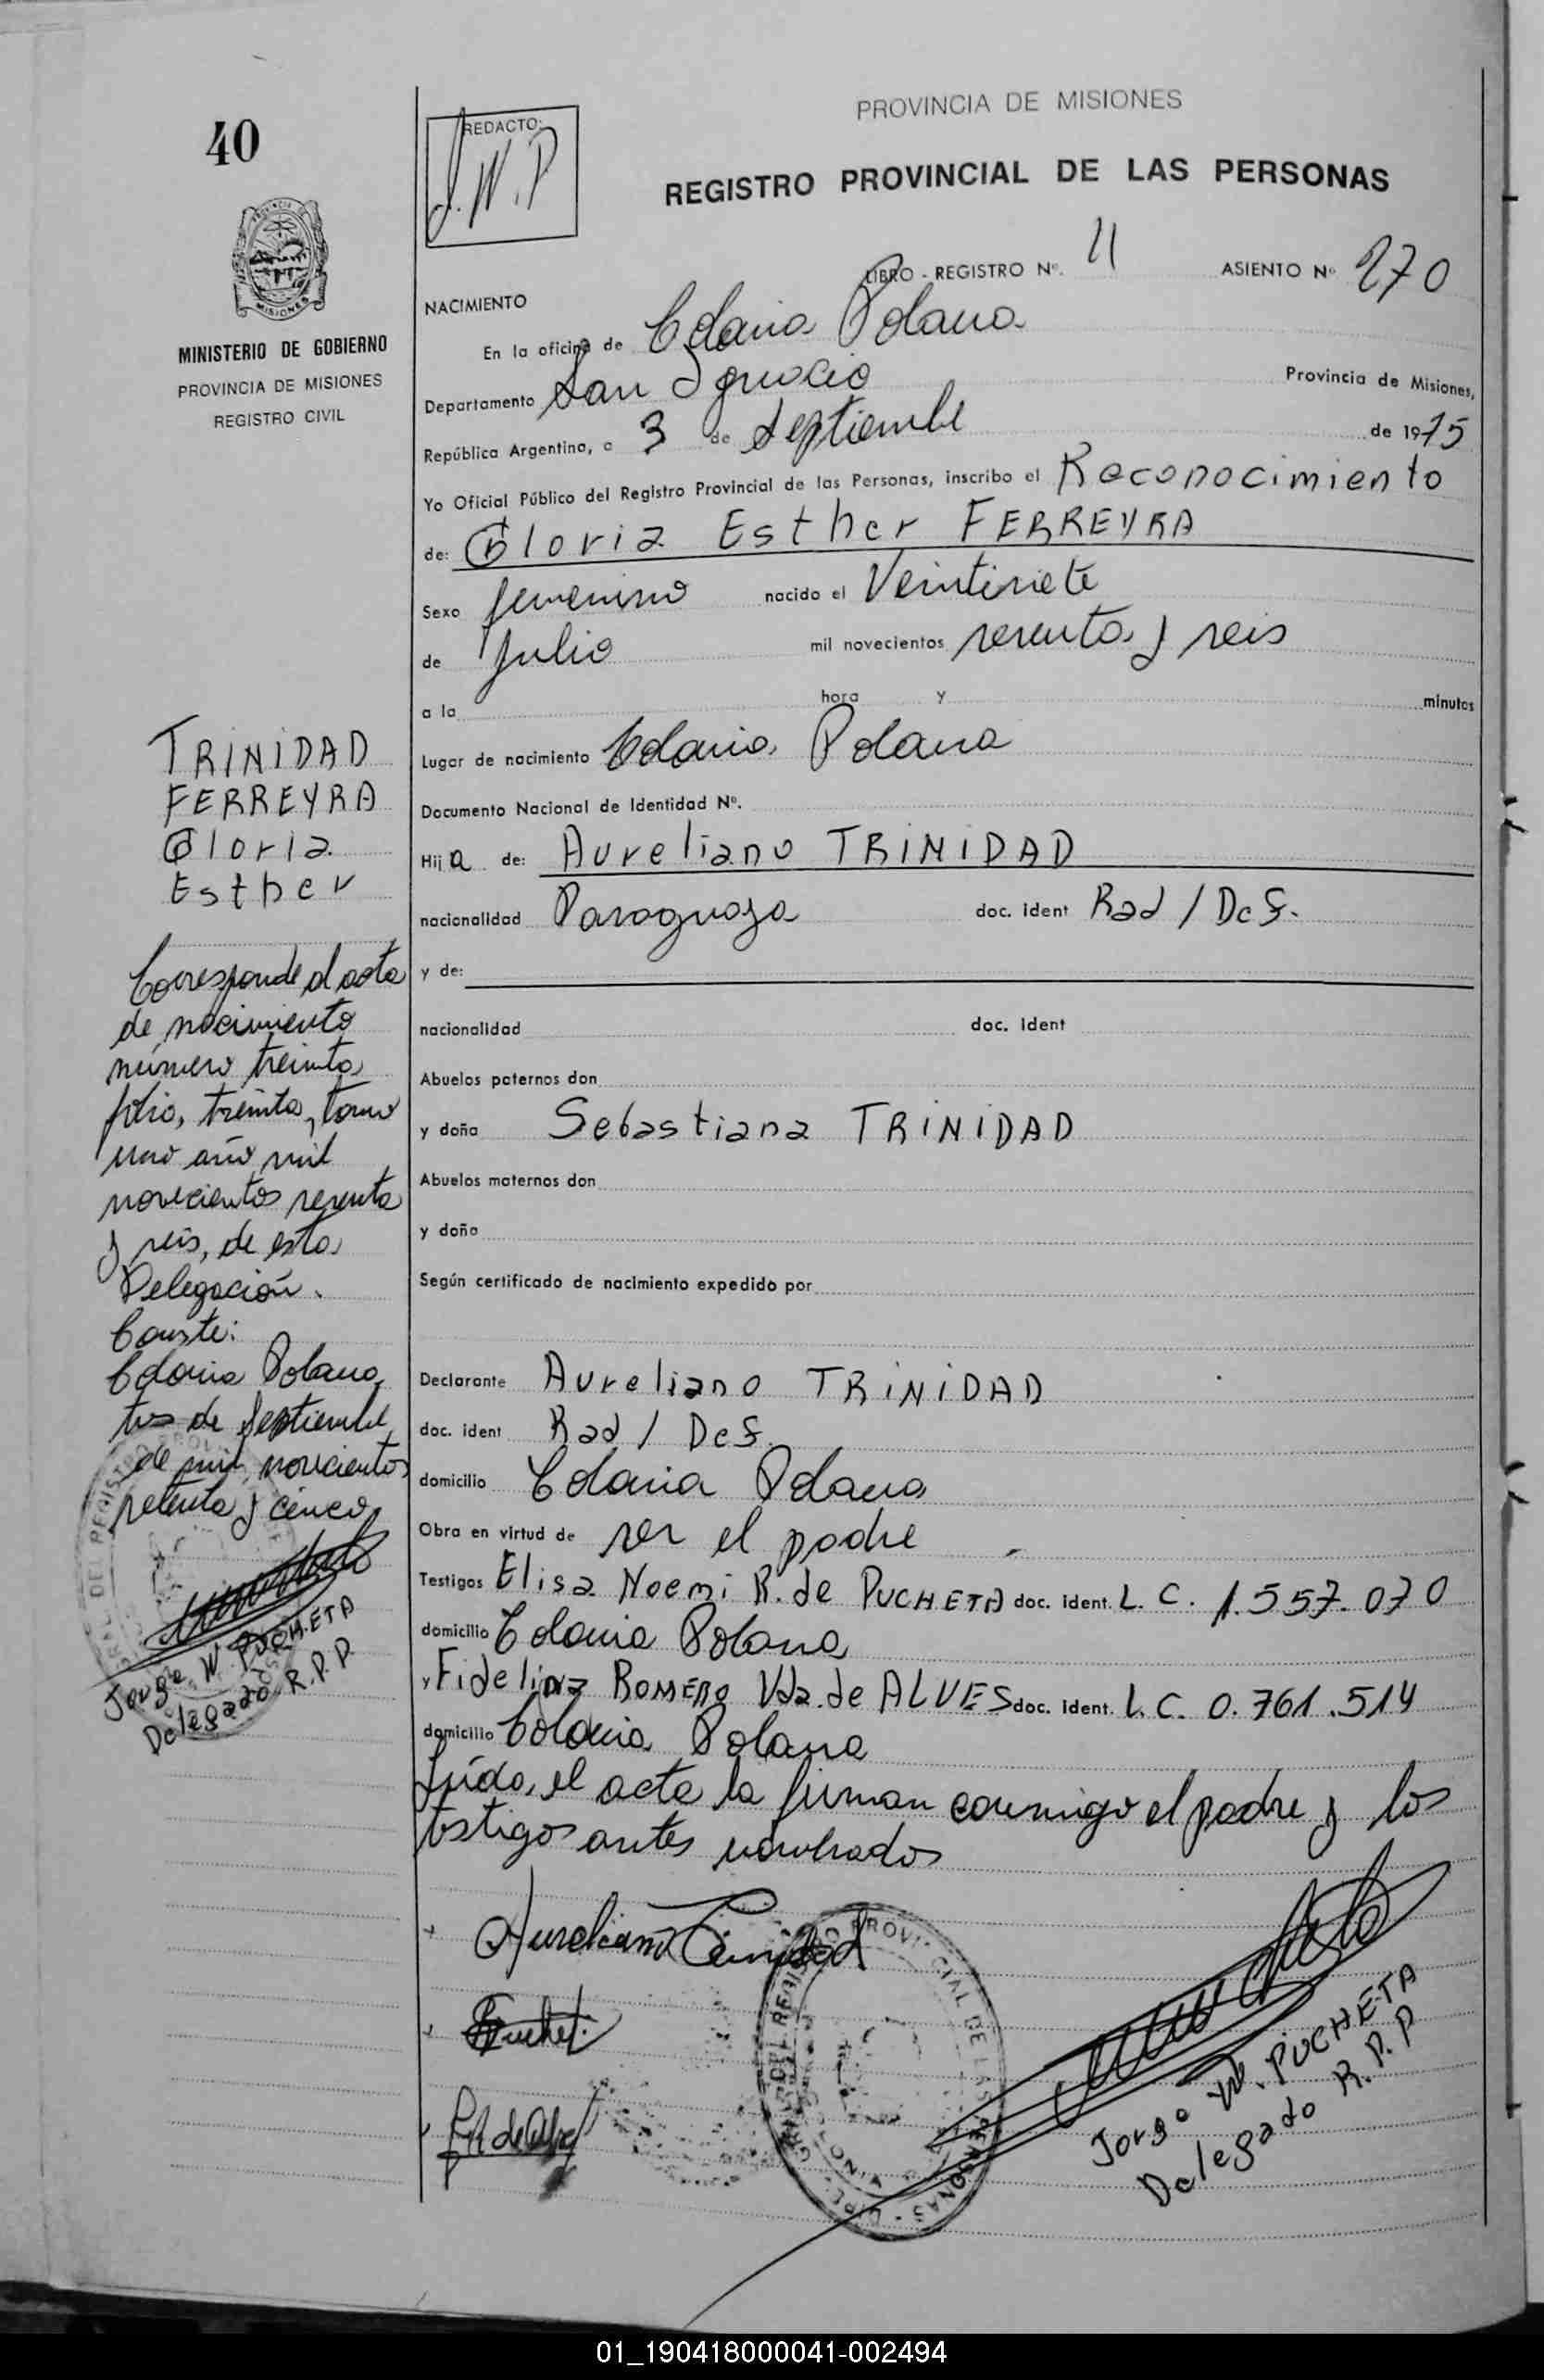 40
REDACTO:
J.W.P
PROVINCIA DE MISIONES
REGISTRO PROVINCIAL DE LAS PERSONAS
LIBRO - REGISTRO Nº. II ASIENTO Nº 270
MINISTERIO DE GOBIERNO
PROVINCIA DE MISIONES
REGISTRO CIVIL
NACIMIENTO
En la oficina de Colonia Polana
Departamento San Ignacio Provincia de Misiones,
República Argentina, a 3 de Septiembre de 1975
Yo Oficial Público del Registro Provincial de las Personas, inscribo el Reconocimiento
de: Gloria Esther FERREYRA
Sexo femenino nacido el Veintisiete
de Julio mil novecientos sesenta y seis
a la hora y minutos
Lugar de nacimiento Colonia Polana
Documento Nacional de Identidad Nº.
Hija de: Aureliano TRINIDAD
nacionalidad Paraguaya doc. ident Rad / Def.
y de:
nacionalidad doc. Ident
Abuelos paternos don
y doña Sebastiana TRINIDAD
Abuelos maternos don
y doña
Según certificado de nacimiento expedido por
Declarante Aureliano TRINIDAD
doc. ident Rad / Def.
domicilio Colonia Polana
Obra en virtud de ser el padre
Testigos Elisa Noemi R. de PUCHETA doc. ident. L. C. 1.557.070
domicilio Colonia Polana
y Fidelina ROMERO Vda. de ALVES doc. ident. L. C. 0.761.514
domicilio Colonia Polana
Leída, el acta la firman conmigo el padre y los
testigos antes nombrados
Aureliano Trinidad
Jorge W. PUCHETA
Delegado R.P.P
TRINIDAD
FERREYRA
Gloria
Esther
Corresponde al acta
de nacimiento
número treinta
folio, treinta, tomo
uno año mil
novecientos sesenta
y seis, de esta
Delegación.
Conste:
Colonia Polana,
tres de Septiembre
de mil novecientos
setenta y cinco
Jorge W PUCHETA
Delegado R.P.P
01_190418000041-002494